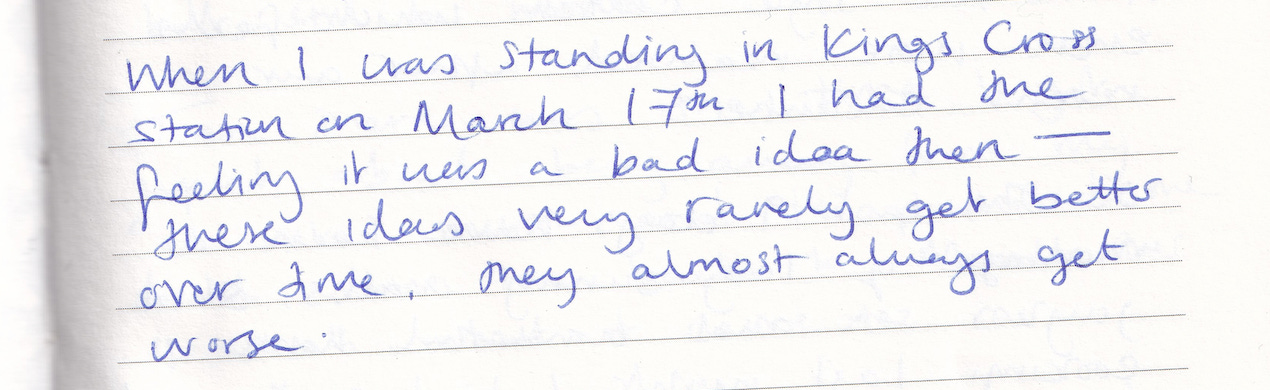 When I was standing in Kings Cross
station on March 17th I had the
feeling it was a bad idea then —
these ideas very rarely get better
over time, they almost always get
worse.